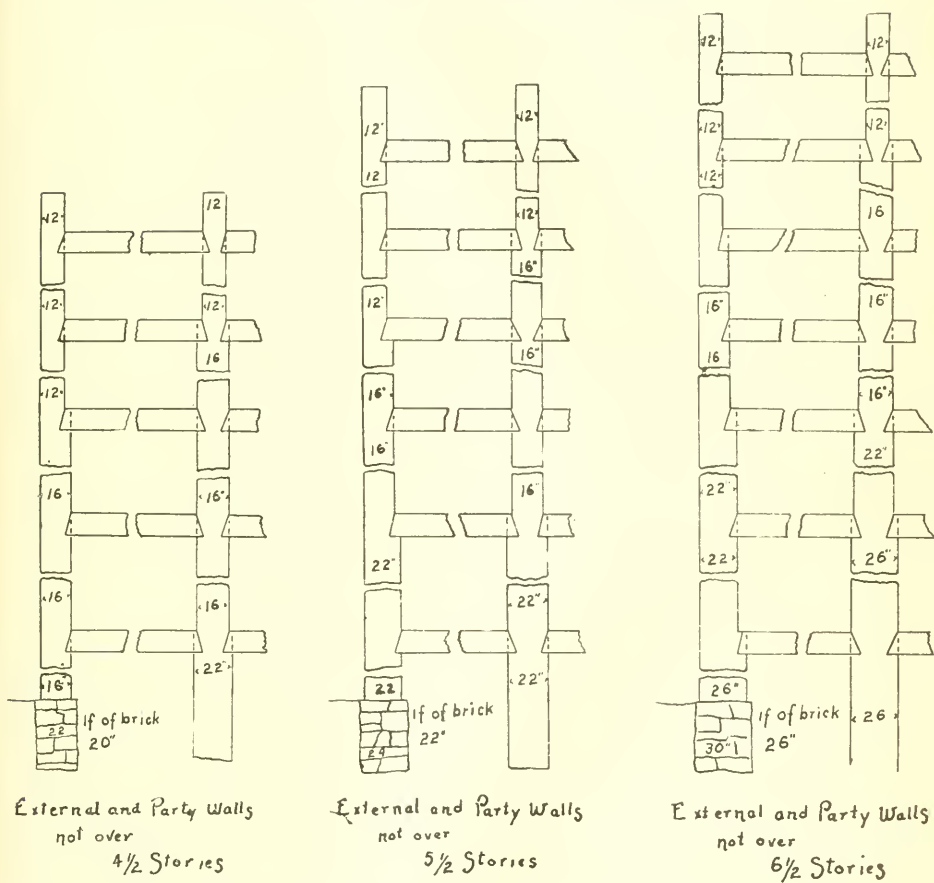 12" 12
12 12
16
12
16 16"
16 16
22"
16"
If of brick
22
20"
External and Party Walls
not over
4½ Stories
12" 12"
12
12"
16"
12"
16"
16"
16"
16"
22"
22"
22 22"
If of brick
22"
24
External and Party Walls
not over
5½ Stories
12" 12"
12" 12"
12
16
16" 16"
16
16"
22"
22"
22 26"
26"
If of brick 26
30" 26"
External and Party Walls
not over
6½ Stories